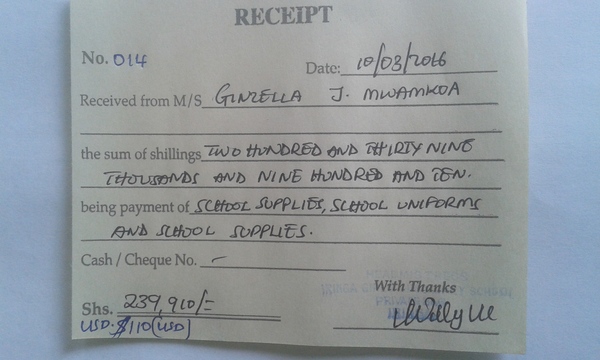 RECEIPT
No. 014
Date: 10/03/2016
Received from M/S GINZELLA J. MWAMKOA
the sum of shillings TWO HUNDRED AND THIRTY NINE
THOUSANDS AND NINE HUNDRED AND TEN.
being payment of SCHOOL SUPPLIES, SCHOOL UNIFORMS
AND SCHOOL SUPPLIES.
Cash / Cheque No. -
With Thanks
Shs. 239,910/=
USD. $110 (USD)
SCHOOL